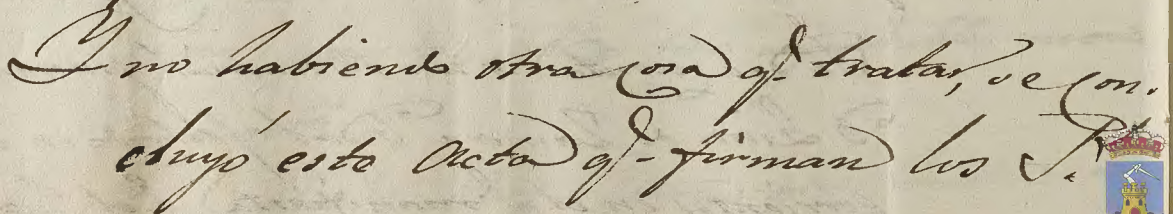 Y no habiendo otra cosa q.e tratar, se con-
cluyó este acta q.e firman los S.